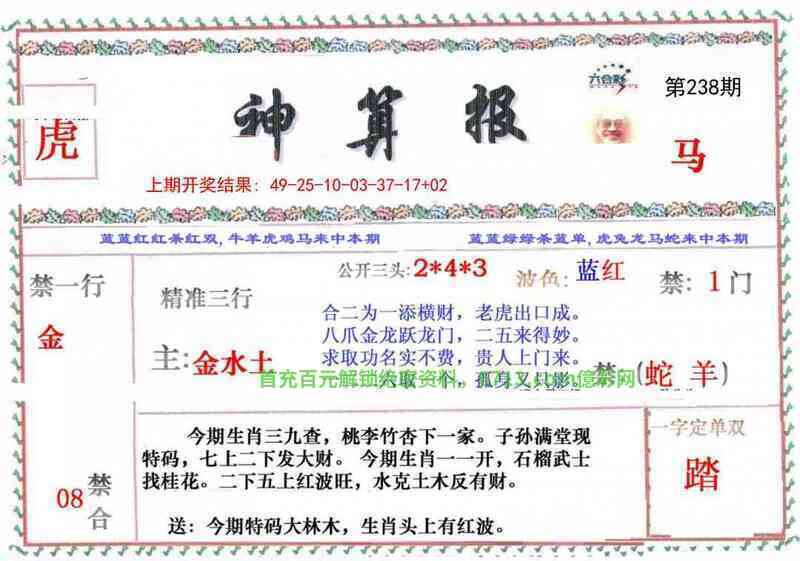 六合彩
第238期
虎
神算报
马
上期开奖结果: 49-25-10-03-37-17+02
蓝蓝红红杀红双, 牛羊虎鸡马来中本期
蓝蓝绿绿杀蓝单, 虎兔龙马蛇来中本期
禁一行
金
精准三行
主: 金水土
公开三头: 2*4*3
波色: 蓝红
禁: 1门
合二为一添横财, 老虎出口成。
八爪金龙跃龙门, 二五来得妙。
求取功名实不费, 贵人上门来。
取一个, 孤身又只影。
禁 (蛇 羊)
首充百元解锁
资料
億彩网
08
禁合
今期生肖三九查, 桃李竹杏下一家。子孙满堂现
特码, 七上二下发大财。 今期生肖一一开, 石榴武士
找桂花。二下五上红波旺, 水克土木反有财。
送: 今期特码大林木, 生肖头上有红波。
一字定单双
踏